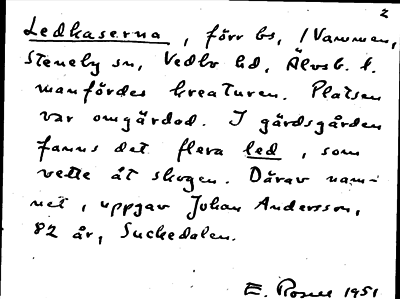 2
Ledkaserna, förr bs, i Vammen,
Stenely sn, Vedbo hd, Älvsb. l.
manfördes kreaturen. Platsen
var omgärdad. I gärdsgården
fanns det flera led, som
vette åt skogen. Därav nam-
net, uppgav Johan Andersson,
82 år, Suckedalen.
E. Rosell 1951